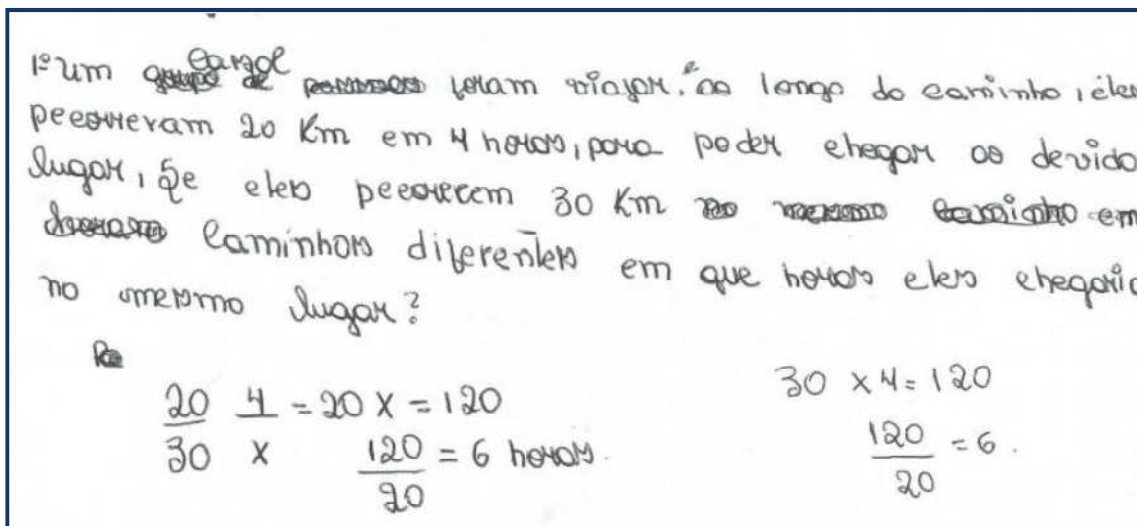 1º um casal foram viajar. ao longo do caminho, eles
pecorreram 20 Km em 4 horas, para poder chegar ao devido
lugar, Se eles pecorrerem 30 Km em
caminhos diferentes em que horas eles chegaria
no mesmo lugar?
20/30 4/x = 20 x = 120
120/20 = 6 horas.
30 x 4 = 120
120/20 = 6.